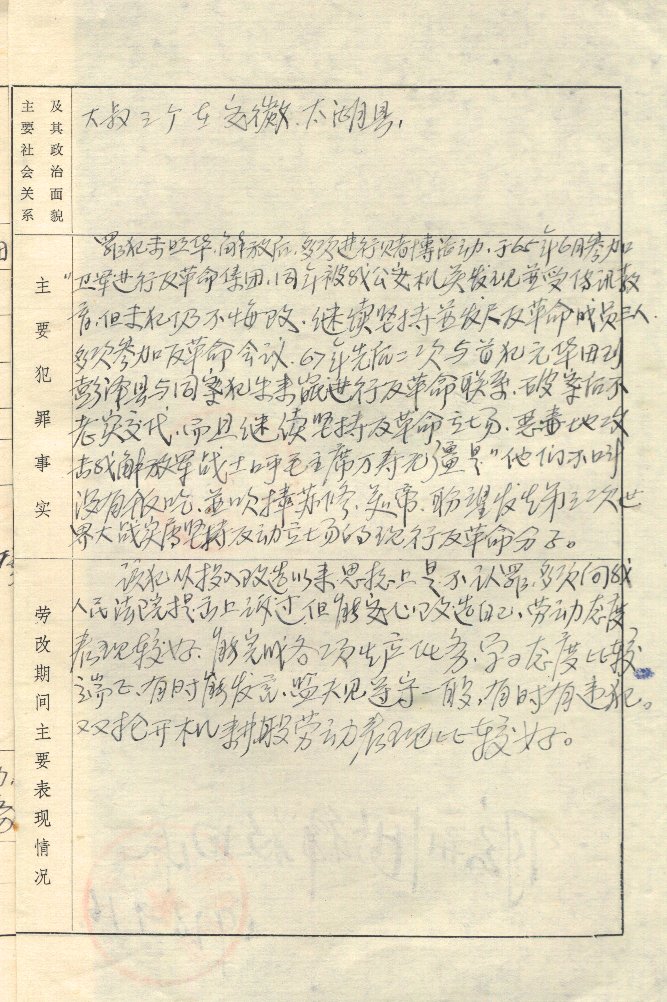 主要社会关系
及其政治面貌
大叔三个在安徽、太湖县、
主要犯罪事实
罪犯朱旺华,解放后,多次进行赌博活动,于65年6月参加
"卫军进行反革命集团,同年被我公安机关发现並受传讯教
育,但朱犯仍不悔改,继续坚持並发展反革命成员三人.
多次参加反革命会议.67年先后二次与首犯元华田到
彭泽县与同案犯朱来崑进行反革命联系,破案后不
老实交代,而且继续坚持反革命立场,恶毒地攻
击我解放军战士呼毛主席万寿无疆是"他们不叫
没有饭吃,並吹捧苏修、美帝、盼望发生第三次世
界大战实属坚持反动立场的现行反革命分子。
劳改期间主要表现情况
该犯从投入改造以来,思想上是不认罪,多次向我
人民法院提出上诉过,但能安心改造自己,劳动态度
表现较好、能完成各项生产任务,学习态度比较
端正,有时能发言,监规遵守一般,有时有违犯。
双抢开机耕船劳动表现比较好。